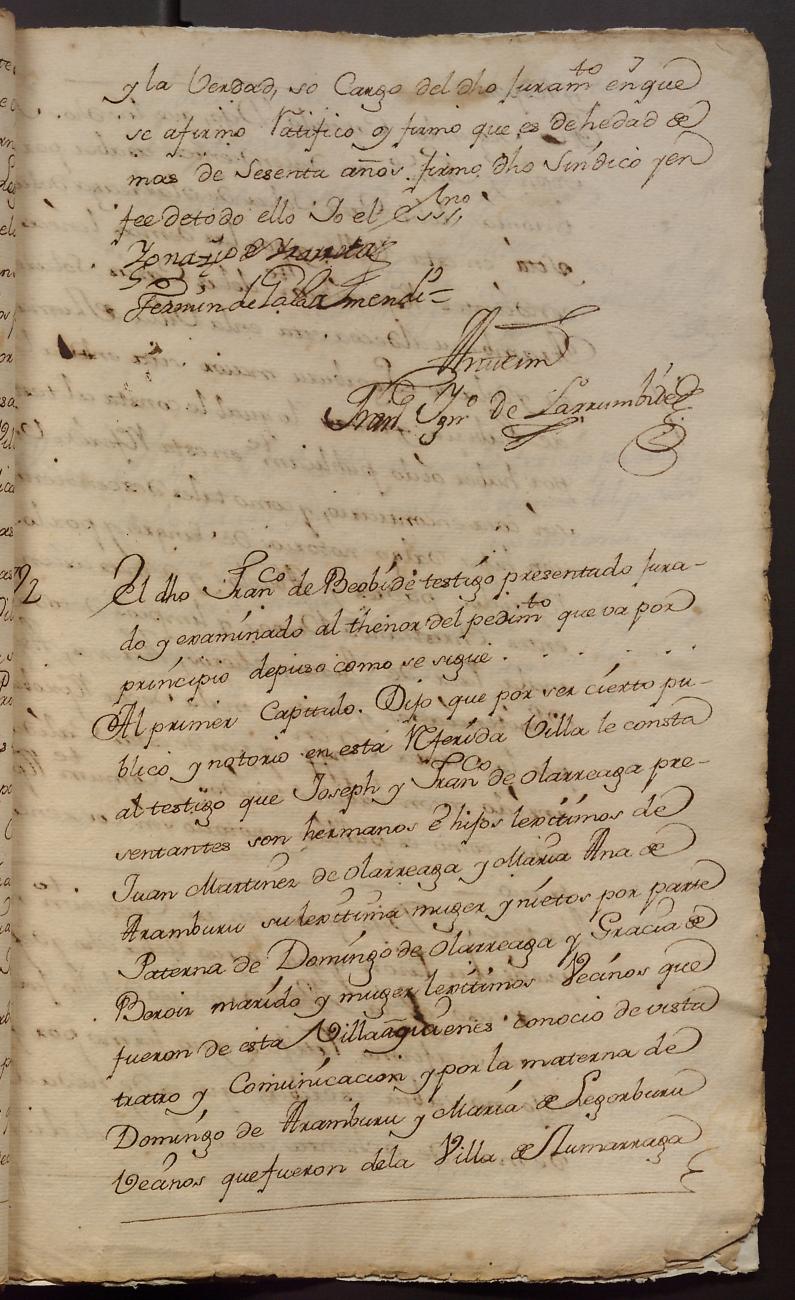 y la Verdad, so Cargo del dho Juramto en que
se afirmo Ratifico y firmo que es de hedad de
mas de Sesenta años firmo dho Sindico y en
fee de todo ello Yo el Essno
Ygnazio de
Fermin de
Antemi
Franco Ygno de Larrumbide
2 El dho Franco de Beobide testigo presentado Jura-
do y examinado al thenor del pedimto que va por
principio depuso como se sigue . . . . . .
Al primer Capitulo. Dijo que por ser cierto pu-
blico y notorio en esta Referida Villa le consta
al testigo que Joseph y Franco de Olarreaga pre-
sentantes son hermanos è hijos lexitimos de
Juan Martinez de Olarreaga y Maria Ana de
Aramburu su lexitima muger y nietos por parte
Paterna de Domingo de Olarreaga y Gracia de
Beroiz marido y muger lexitimos Vecinos que
fueron de esta Villa a quienes conocio de vista
trato y Comunicacion y por la materna de
Domingo de Aramburu y Maria de Legorburu
Vecinos que fueron de la Villa de Zumarraga